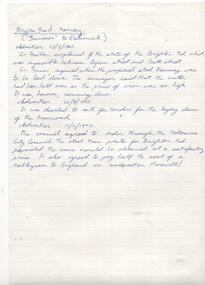 Brighton Road Tramway.
("Swanson" to Elsternwick)
Advertiser 13/5/1910
Cr. Poulton complained of the state of the Brighton Rd. which
was impassible between Byron street and Scott street
Cr. agreed when the proposed steel tramway was
to be laid down. The surveyor said that the matter
had been held over as the price of iron was so high
It was, however, coming down
Advertiser 20/8/
It was decided to call for tenders for the laying down
of the tramroad.
Advertiser
The council agreed to order through the Melbourne
City Council the steel tram plates for Brighton Rd
provided the same could be obtained at a satisfactory
price. It also agreed to pay half the cost of a
cablegram to England